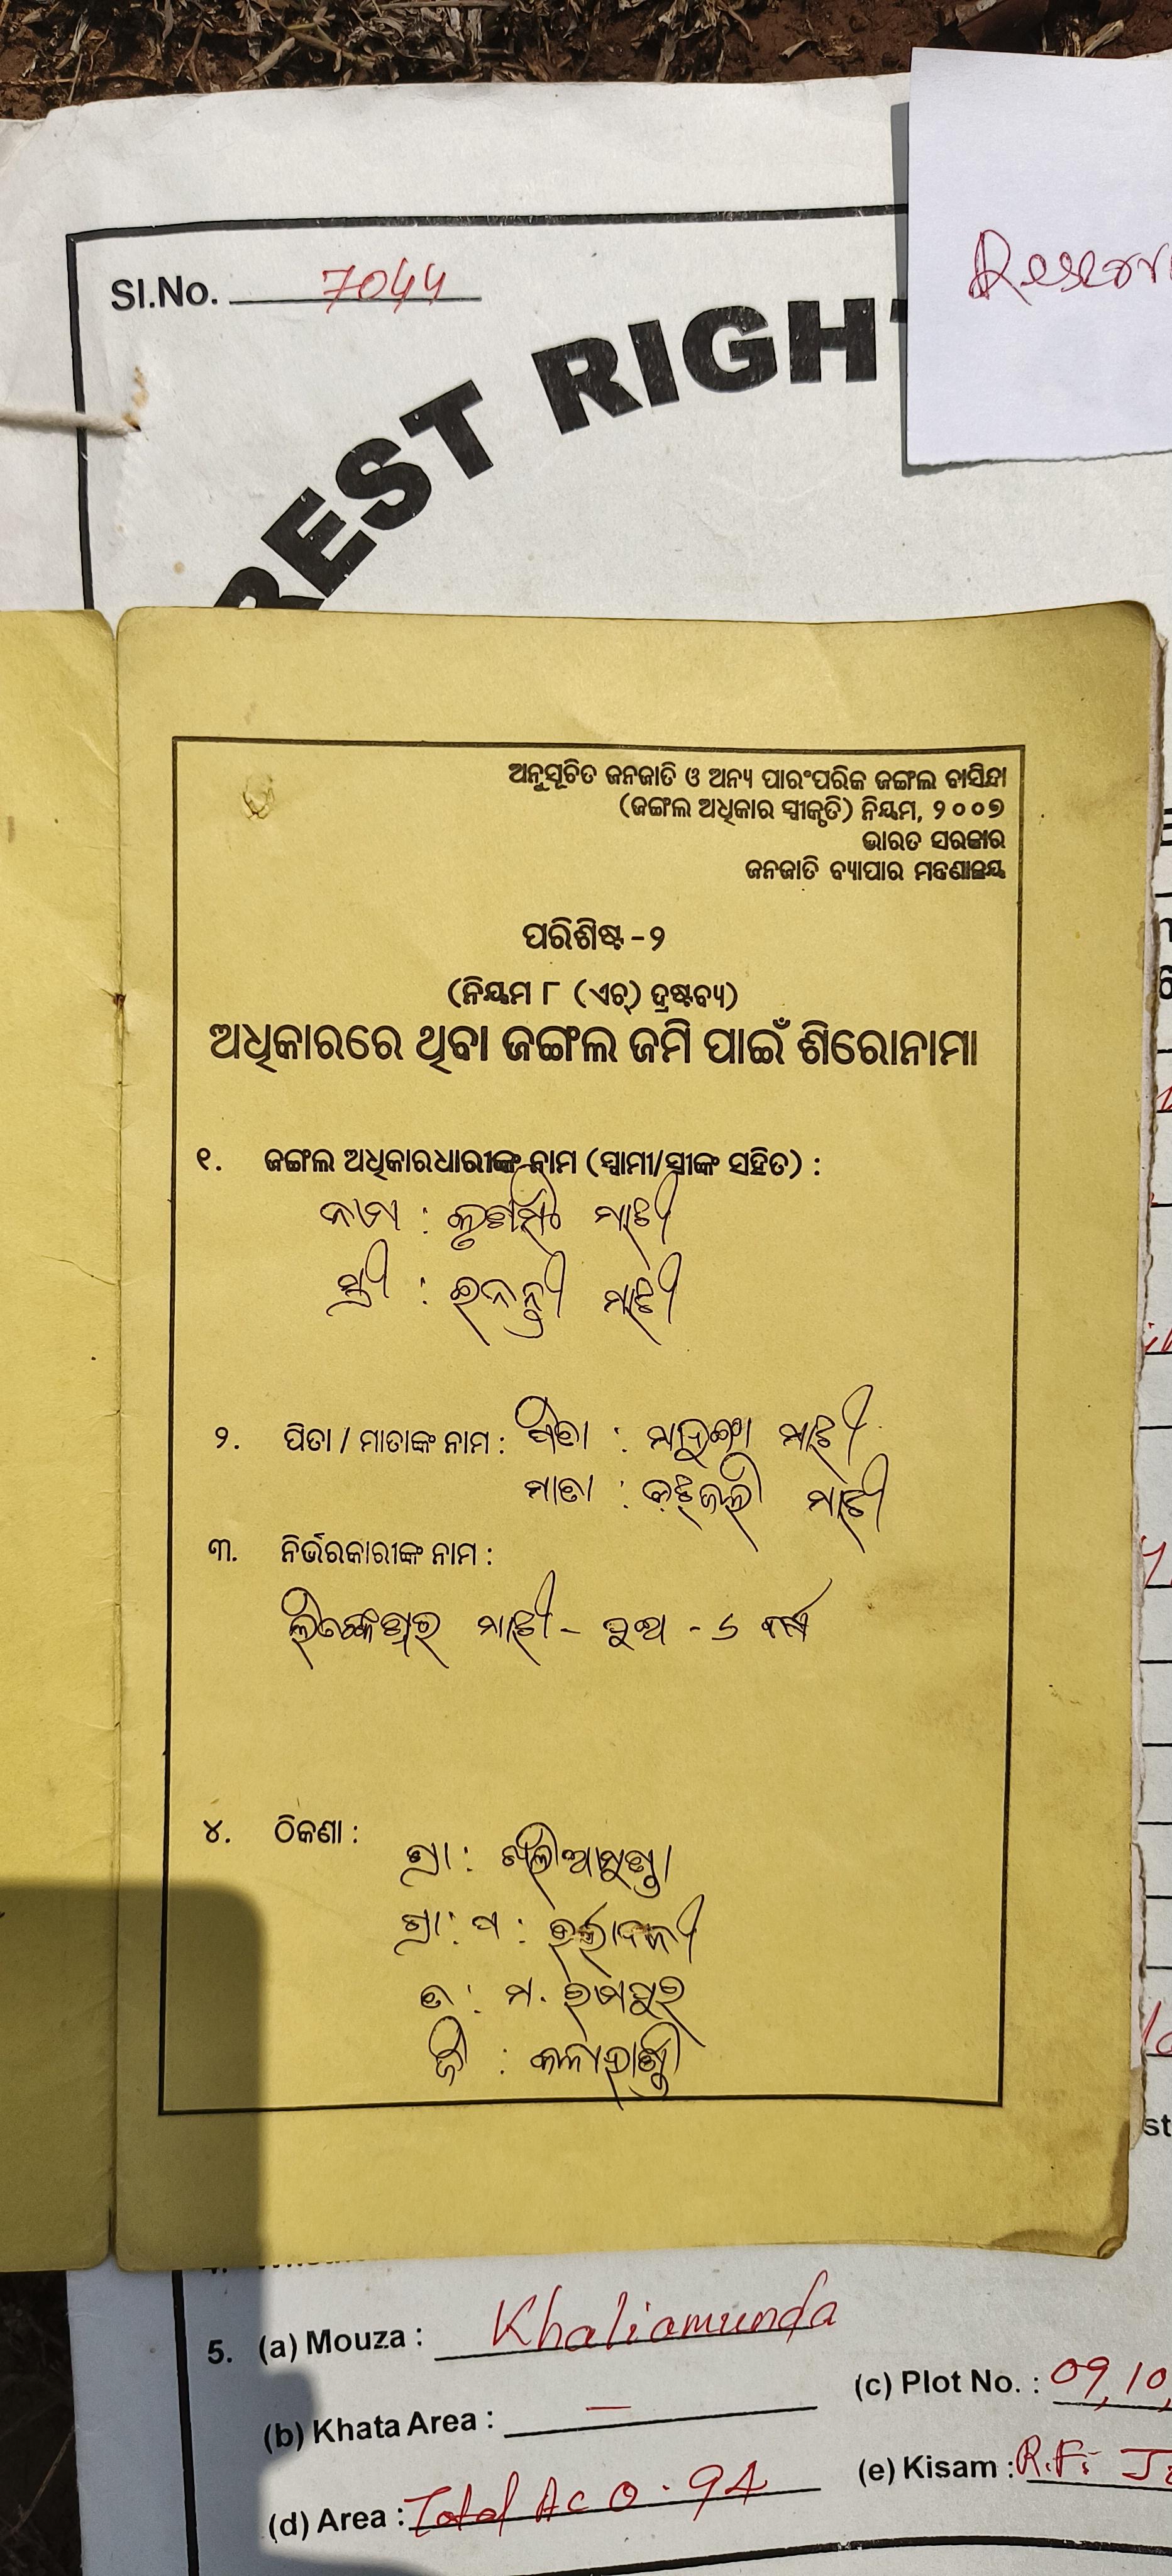 Sl.No. 7044
Reserv
REST RIGHT
ଅନୁସୂଚିତ ଜନଜାତି ଓ ଅନ୍ୟ ପାରଂପରିକ ଜଙ୍ଗଲ ବାସିନ୍ଦା
(ଜଙ୍ଗଲ ଅଧିକାର ସ୍ୱୀକୃତି) ନିୟମ, ୨୦୦୭
ଭାରତ ସରକାର
ଜନଜାତି ବ୍ୟାପାର ମନ୍ତ୍ରଣାଳୟ
ପରିଶିଷ୍ଟ -୨
(ନିୟମ ୮ (ଏଚ୍) ଦ୍ରଷ୍ଟବ୍ୟ)
ଅଧିକାରରେ ଥିବା ଜଙ୍ଗଲ ଜମି ପାଇଁ ଶିରୋନାମା
୧. ଜଙ୍ଗଲ ଅଧିକାରଧାରୀଙ୍କ ନାମ (ସ୍ୱାମୀ/ସ୍ତ୍ରୀଙ୍କ ସହିତ) :
ନାମ : ମାଝୀ
ସ୍ତ୍ରୀ : ମାଝୀ
୨. ପିତା / ମାତାଙ୍କ ନାମ : ପିତା : ମାଝୀ
ମାତା : ମାଝୀ
୩. ନିର୍ଭରକାରୀଙ୍କ ନାମ :
ମାଝୀ - ପୁଅ - ୬ ବର୍ଷ
୪. ଠିକଣା :
ଗ୍ରା : ଖଲିଆମୁଣ୍ଡା
ଗ୍ରା : ପ :
ବ୍ଲ : ମ. ରାମପୁର
ଜି : କଳାହାଣ୍ଡି
5. (a) Mouza : Khaliamunda
(c) Plot No. : 09, 10,
(b) Khata Area : —
(e) Kisam : R.F.
(d) Area : Total Ac 0.94